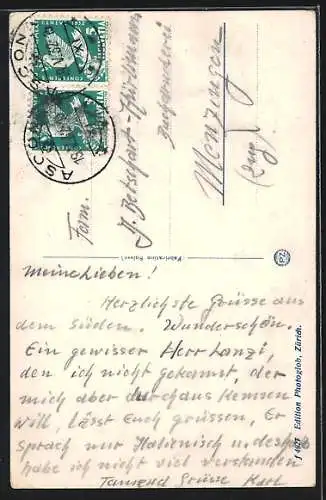 Fam.
A. Betschart-Hürlimann
Menzingen
(Zug)
ASCONA
HELVETIA
5
(Fabrication Suisse)
J 4671 Edition Photoglob, Zürich.
Meine Lieben!
Herzlichste Grüsse aus
dem Süden. Wunderschön.
Ein gewisser Herr Lanzi,
den ich nicht gekannt, der
mich aber durchaus kennen
will, lässt Euch grüssen, Er
sprach nur Italienisch u. deshalb
habe ich nicht viel verstanden
Tausend Grüsse Karl